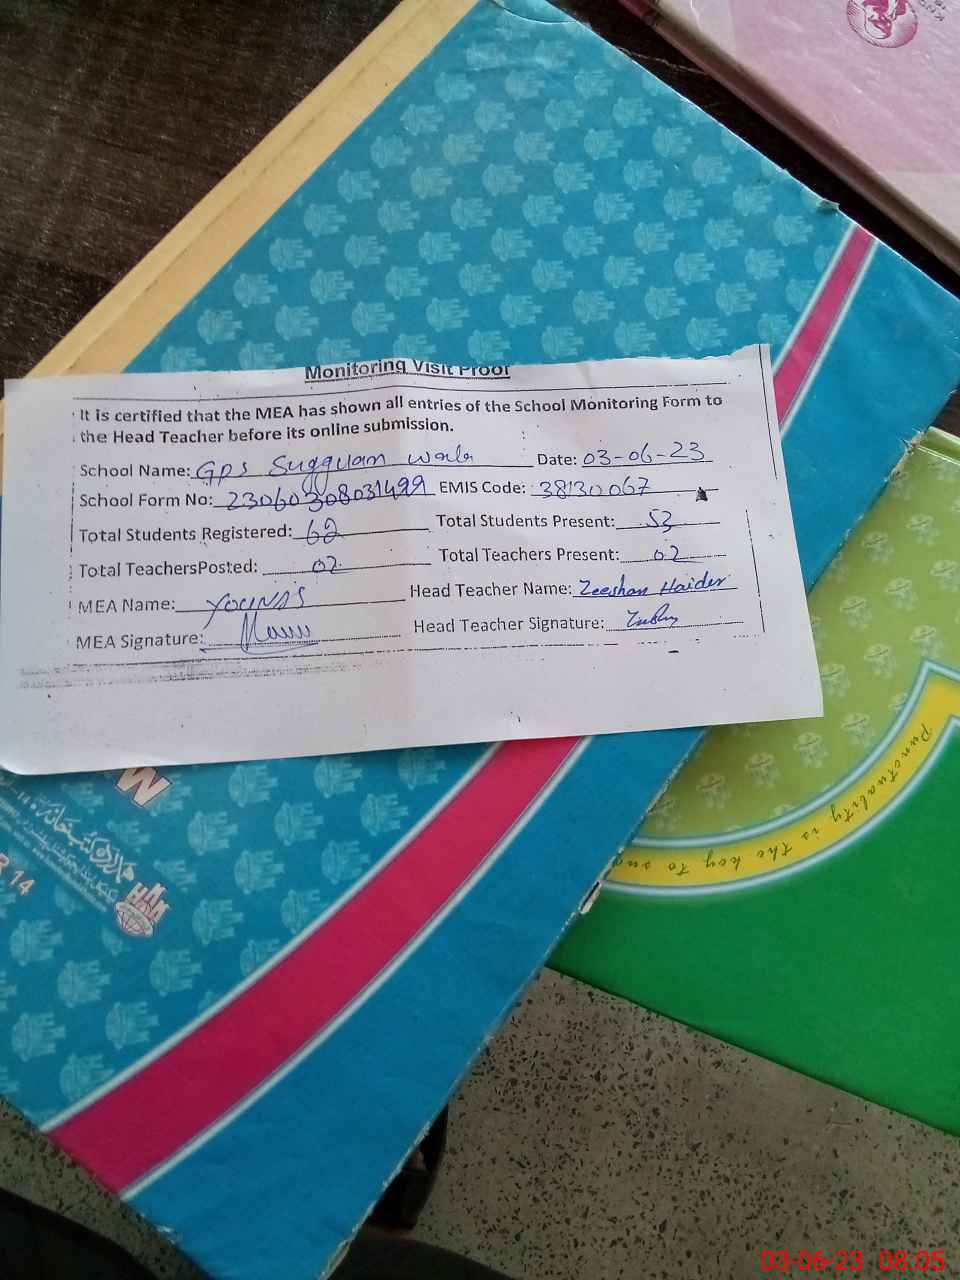 Monitoring Visit Proof
It is certified that the MEA has shown all entries of the School Monitoring Form to
the Head Teacher before its online submission.
School Name: GPS Sugguan wala Date: 03-06-23
School Form No: 23060308031499 EMIS Code: 38130067
Total Students Registered: 62 Total Students Present: 53
Total TeachersPosted: 02 Total Teachers Present: 02
MEA Name: YOUNAS Head Teacher Name: Zeeshan Haider
MEA Signature: Head Teacher Signature:
Punctuality is the key to suc
R 14
03-06-23 08:05